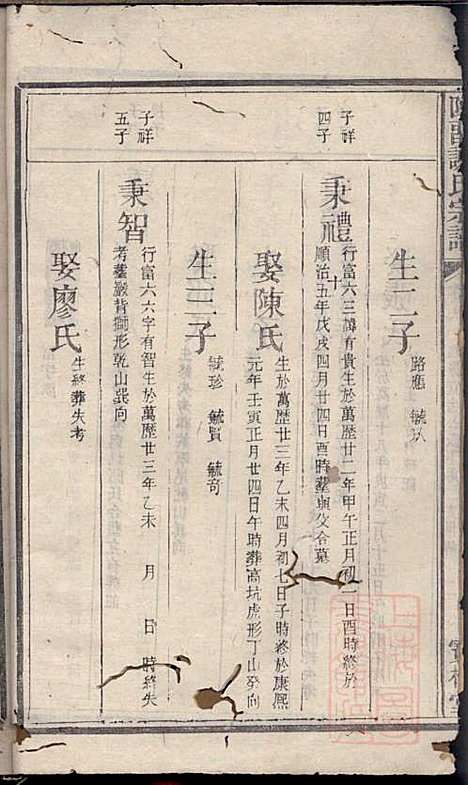 生二子
路應　毓以
子祥
四子
秉禮
行富六三諱有貴生於萬歷廿二年甲午正月初一日酉時終於
順治五年戊戌四月廿四日酉時葬與父合墓
娶陳氏
生於萬歷廿三年乙未四月初七日子時終於康熙
元年壬寅正月廿四日午時葬高坑虎形丁山癸向
生三子
毓珍　毓賢　毓奇
子祥
五子
秉智
行富六六字有智生於萬歷廿三年乙未　月　日　時終失
考葬嚴背獅形乾山巽向
娶廖氏
生終葬失考